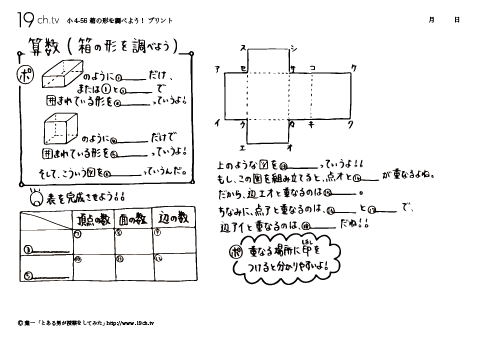 19ch.tv 小4-56 箱の形を調べよう! プリント 月 日
算数(箱の形を調べよう)
ポ のように① だけ、
または①と② で
囲まれている形を③ っていうよ!
のように④ だけで
囲まれている形を⑤ っていうよ!
そして、こういう図を⑥ っていうんだ。
表を完成させよう!!
頂点の数 面の数 辺の数
ス シ
ア セ サ コ ケ
イ ウ カ キ ク
エ オ
上のような図を っていうよ!!
もし、この図を組み立てると、点オと が重なるよね。
だから、辺エオと重なるのは 。
ちなみに、点アと重なるのは、 と で、
辺アイと重なるのは、 だね!!
ポ 重なる場所に印を
はし
つけると分かりやすいよ!
©葉一「とある男が授業をしてみた」http://www.19ch.tv/